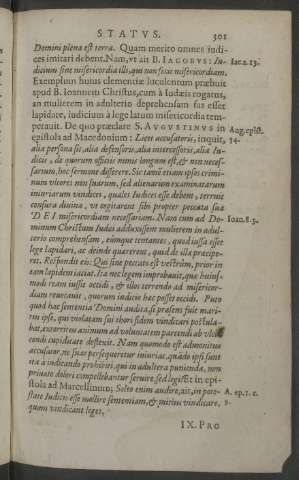 STATVS. 301
Domini plena est terra. Quam merito omnes iudi-
ces imitari debent. Nam, vt ait B. IACOBVS: Iu- Iac. 2. 13.
dicium sine misericordia illi, qui non fecit misericordiam.
Exemplum huius clementiæ luculentum præbuit
ipsud B. Ioannem Christus, cum à Iudæis rogatus,
an mulierem in adulterio deprehensam fas esset
lapidare, iudicium à lege latum misericordia tem-
perauit. De quo præclare S. AVGVSTINVS in Aug. epist.
epistola ad Macedonium: Licet accusatoris, inquit, 54.
alia persona sit, alia defensoris, alia intercessoris, alia Iu-
dicis, de quorum officiis nimis longum est, & non neces-
sarium, hoc sermone disserere. Sic tamē etiam ipsos crimi-
num vltores non suarum, sed alienarum examinatarum
iniuriarum vindices, quales Iudices esse debent, terruit
censura diuina, vt cogitarent sibi propter peccata sua
DEI misericordiam necessariam. Nam cum ad Do- Ioan. 8. 3.
minum Christum Iudæi adduxissent mulierem in adul-
terio comprehensam, eumque tentantes, quod iussa esset
lege lapidari, ac deinde quærerent, quid de illa præcipe-
ret. Respondit eis: Qui sine peccato est vestrûm, prior in
eam lapidem iaciat. Ita nec legem improbauit, quæ huius-
modi ream iussit occidi, & illos terrendo ad misericor-
diam reuocauit, quorum iudicio hæc posset occidi. Puto
quod hac sententia Domini audita, si præsens fuit mari-
tus ipse, qui violatam sui thori fidem vindicari postula-
bat, exterritus animum ad voluntatem parcendi ab vlcis-
cendi cupiditate deflexit. Nam quomodo est admonitus
accusator, ne suas persequeretur iniurias, quādo ipsi sunt
ita à iudicando prohibiti, qui in adultera punienda, non
priuato dolori compellebantur seruire, sed legi? Et in epi-
stola ad Marcellinum; Solet enim audire, ait, in pote- A. ep. 1. c.
state Iudicis esse mollire sententiam, & mitius vindicare,
quam vindicant leges.
IX. PRO